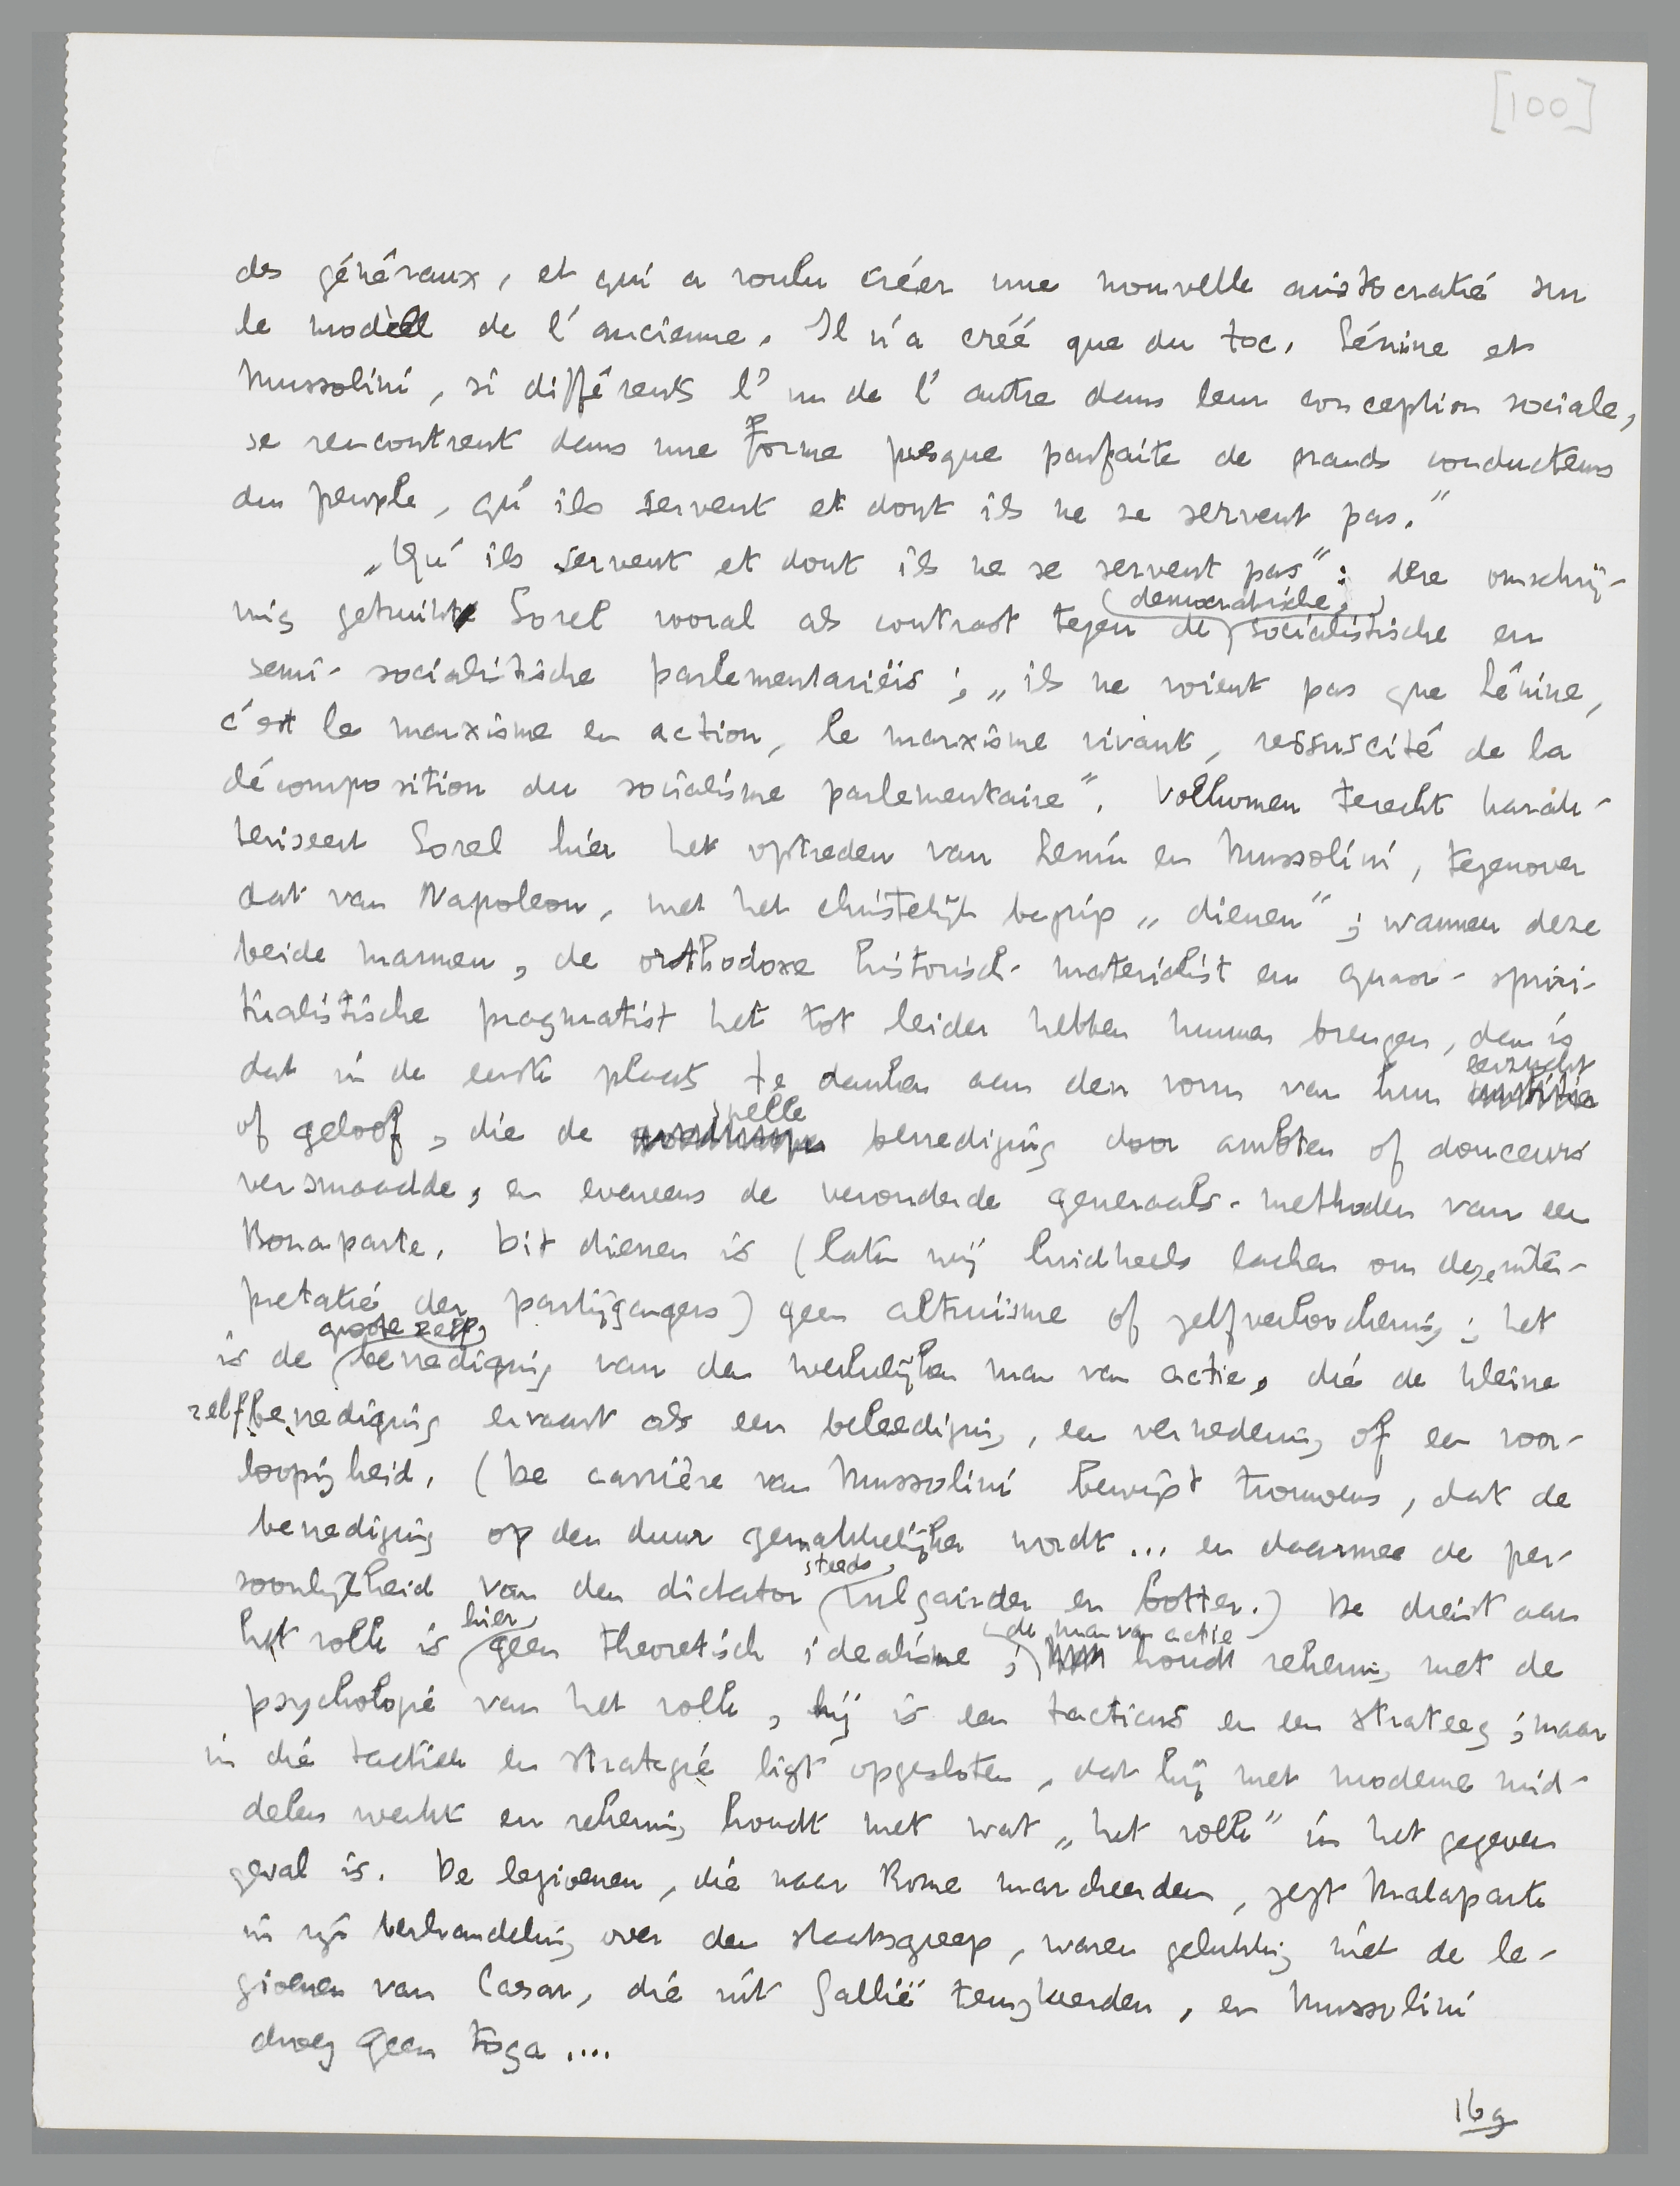 [100]
des généraux, et qui a voulu créer une nouvelle aristocratie sur
le modèle de l'ancienne. Il n'a créé que du toc. Lénine et
Mussolini, si différents l'un de l'autre dans leur conception sociale,
se rencontrent dans une forme presque parfaite de grands conducteurs
du peuple, qu'ils servent et dont ils ne se servent pas."
„Qu'ils servent et dont ils ne se servent pas": deze omschrij-
ving gebruikt Sorel vooral als contrast tegen de democratische, socialistische en
semi-socialistische parlementariërs; „ils ne voient pas que Lénine,
c'est le marxisme en action, le marxisme vivant, ressuscité de la
décomposition du socialisme parlementaire". Volkomen terecht karak-
teriseert Sorel hier het optreden van Lenin en Mussolini, tegenover
dat van Napoleon, met het christelijk begrip „dienen"; wanneer deze
beide mannen, de orthodoxe historisch-materialist en quasi-spiri-
tualistische pragmatist het tot leider hebben kunnen brengen, dan is
dat in de eerste plaats te danken aan den vorm van hun eerzucht
of geloof, die de snelle bevrediging door ambten of douceurs
versmaadde, en eveneens de verouderde generaals-methoden van een
Bonaparte. Dit dienen is (laten wij luidkeels lachen om deze inter-
pretatie der partijgangers) geen altruïsme of zelfverloochening; het
is de groote zelfbevrediging van den werkelijken man van actie, die de kleine
zelfbevrediging ervaart als een beleediging, een vernedering of een voor-
loopigheid. (De carrière van Mussolini bewijst trouwens, dat de
bevrediging op den duur gemakkelijker wordt ... en daarmee de per-
soonlijkheid van den dictator steeds vulgairder en botter.) De dienst aan
het volk is hier geen theoretisch idealisme; de man van actie houdt rekening met de
psychologie van het volk, hij is een tacticus en een strateeg; maar
in die tactiek en strategie ligt opgesloten, dat hij met moderne mid-
delen werkt en rekening houdt met wat „het volk" in het gegeven
geval is. De legioenen, die naar Rome marcheerden, zegt Malaparte
in zijn verhandeling over den staatsgreep, waren gelukkig niet de le-
gioenen van Caesar, die uit Gallië terugkeerden, en Mussolini
droeg geen toga ....
169